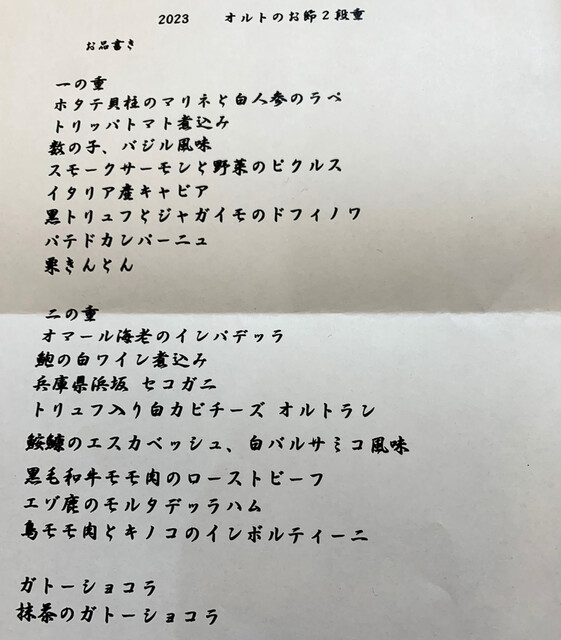 2023 オルトのお節２段重
お品書き
一の重
ホタテ貝柱のマリネと白人参のラペ
トリッパトマト煮込み
数の子、バジル風味
スモークサーモンと野菜のピクルス
イタリア産キャビア
黒トリュフとジャガイモのドフィノワ
パテドカンパーニュ
栗きんとん
二の重
オマール海老のインパデッラ
鮑の白ワイン煮込み
兵庫県浜坂 セコガニ
トリュフ入り白カビチーズ オルトラン
鮟鱇のエスカベッシュ、白バルサミコ風味
黒毛和牛モモ肉のローストビーフ
エゾ鹿のモルタデッラハム
鳥モモ肉とキノコのインボルティーニ
ガトーショコラ
抹茶のガトーショコラ